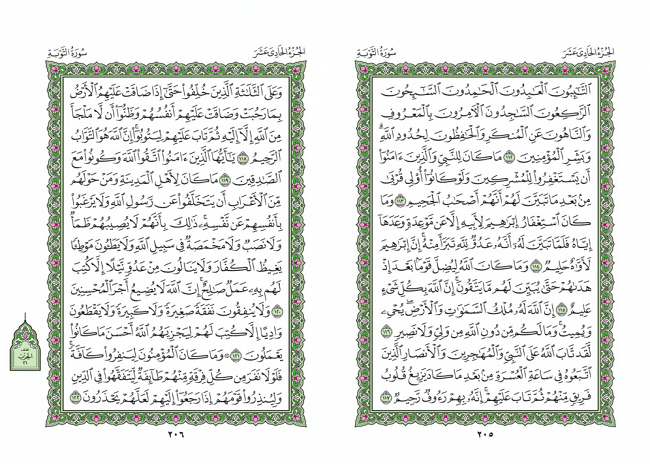 الجزء الحادي عشر
سورة التوبة
التَّٰٓئِبُونَ ٱلْعَٰبِدُونَ ٱلْحَٰمِدُونَ ٱلسَّٰٓئِحُونَ
ٱلرَّٰكِعُونَ ٱلسَّٰجِدُونَ ٱلْءَامِرُونَ بِٱلْمَعْرُوفِ
وَٱلنَّاهُونَ عَنِ ٱلْمُنكَرِ وَٱلْحَٰفِظُونَ لِحُدُودِ ٱللَّهِۗ
وَبَشِّرِ ٱلْمُؤْمِنِينَ ١١٢ مَا كَانَ لِلنَّبِيِّ وَٱلَّذِينَ ءَامَنُوٓاْ
أَن يَسْتَغْفِرُواْ لِلْمُشْرِكِينَ وَلَوْ كَانُوٓاْ أُوْلِي قُرْبَىٰ
مِنۢ بَعْدِ مَا تَبَيَّنَ لَهُمْ أَنَّهُمْ أَصْحَٰبُ ٱلْجَحِيمِ ١١٣ وَمَا
كَانَ ٱسْتِغْفَارُ إِبْرَٰهِيمَ لِأَبِيهِ إِلَّا عَن مَّوْعِدَةٍ وَعَدَهَآ
إِيَّاهُ فَلَمَّا تَبَيَّنَ لَهُۥٓ أَنَّهُۥ عَدُوٌّ لِّلَّهِ تَبَرَّأَ مِنْهُۚ إِنَّ إِبْرَٰهِيمَ
لَأَوَّٰهٌ حَلِيمٌ ١١٤ وَمَا كَانَ ٱللَّهُ لِيُضِلَّ قَوْمَۢا بَعْدَ إِذْ
هَدَىٰهُمْ حَتَّىٰ يُبَيِّنَ لَهُم مَّا يَتَّقُونَۚ إِنَّ ٱللَّهَ بِكُلِّ شَيْءٍ
عَلِيمٌ ١١٥ إِنَّ ٱللَّهَ لَهُۥ مُلْكُ ٱلسَّمَٰوَٰتِ وَٱلْأَرْضِۖ يُحْيِۦ
وَيُمِيتُۚ وَمَا لَكُم مِّن دُونِ ٱللَّهِ مِن وَلِيٍّ وَلَا نَصِيرٍ ١١٦
لَّقَد تَّابَ ٱللَّهُ عَلَى ٱلنَّبِيِّ وَٱلْمُهَٰجِرِينَ وَٱلْأَنصَارِ ٱلَّذِينَ
ٱتَّبَعُوهُ فِي سَاعَةِ ٱلْعُسْرَةِ مِنۢ بَعْدِ مَا كَادَ يَزِيغُ قُلُوبُ
فَرِيقٍ مِّنْهُمْ ثُمَّ تَابَ عَلَيْهِمْۚ إِنَّهُۥ بِهِمْ رَءُوفٌ رَّحِيمٌ ١١٧
٢٠٥
الجزء الحادي عشر
سورة التوبة
وَعَلَى ٱلثَّلَٰثَةِ ٱلَّذِينَ خُلِّفُواْ حَتَّىٰٓ إِذَا ضَاقَتْ عَلَيْهِمُ ٱلْأَرْضُ
بِمَا رَحُبَتْ وَضَاقَتْ عَلَيْهِمْ أَنفُسُهُمْ وَظَنُّوٓاْ أَن لَّا مَلْجَأَ
مِنَ ٱللَّهِ إِلَّآ إِلَيْهِ ثُمَّ تَابَ عَلَيْهِمْ لِيَتُوبُوٓاْۚ إِنَّ ٱللَّهَ هُوَ ٱلتَّوَّابُ
ٱلرَّحِيمُ ١١٨ يَٰٓأَيُّهَا ٱلَّذِينَ ءَامَنُواْ ٱتَّقُواْ ٱللَّهَ وَكُونُواْ مَعَ
ٱلصَّٰدِقِينَ ١١٩ مَا كَانَ لِأَهْلِ ٱلْمَدِينَةِ وَمَنْ حَوْلَهُم
مِّنَ ٱلْأَعْرَابِ أَن يَتَخَلَّفُواْ عَن رَّسُولِ ٱللَّهِ وَلَا يَرْغَبُواْ
بِأَنفُسِهِمْ عَن نَّفْسِهِۦۚ ذَٰلِكَ بِأَنَّهُمْ لَا يُصِيبُهُمْ ظَمَأٌ
وَلَا نَصَبٌ وَلَا مَخْمَصَةٌ فِي سَبِيلِ ٱللَّهِ وَلَا يَطَـُٔونَ مَوْطِئًا
يَغِيظُ ٱلْكُفَّارَ وَلَا يَنَالُونَ مِنْ عَدُوٍّ نَّيْلًا إِلَّا كُتِبَ
لَهُم بِهِۦ عَمَلٌ صَٰلِحٌۚ إِنَّ ٱللَّهَ لَا يُضِيعُ أَجْرَ ٱلْمُحْسِنِينَ
١٢٠ وَلَا يُنفِقُونَ نَفَقَةً صَغِيرَةً وَلَا كَبِيرَةً وَلَا يَقْطَعُونَ
وَادِيًا إِلَّا كُتِبَ لَهُمْ لِيَجْزِيَهُمُ ٱللَّهُ أَحْسَنَ مَا كَانُواْ
يَعْمَلُونَ ١٢١ وَمَا كَانَ ٱلْمُؤْمِنُونَ لِيَنفِرُواْ كَآفَّةًۚ
فَلَوْلَا نَفَرَ مِن كُلِّ فِرْقَةٍ مِّنْهُمْ طَآئِفَةٌ لِّيَتَفَقَّهُواْ فِي ٱلدِّينِ
وَلِيُنذِرُواْ قَوْمَهُمْ إِذَا رَجَعُوٓاْ إِلَيْهِمْ لَعَلَّهُمْ يَحْذَرُونَ ١٢٢
٢٠٦